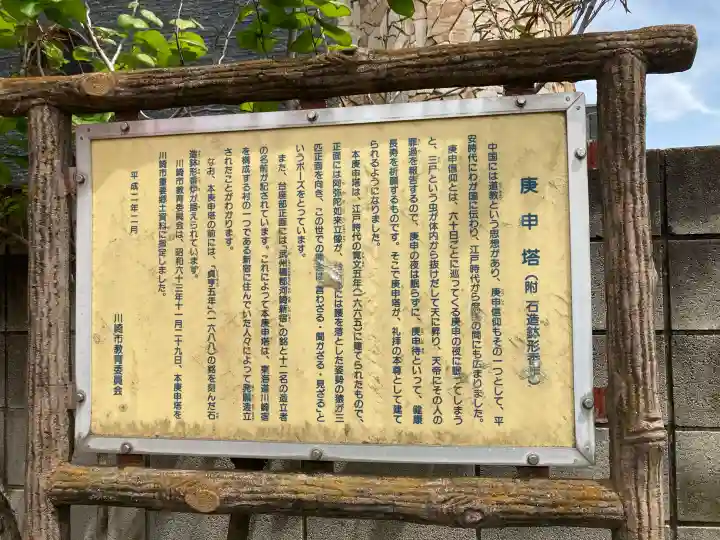 庚申塔(附 石造鉢形香炉)
中国には道教という思想があり、庚申信仰もその一つとして、平
安時代にわが国に伝わり、江戸時代から の間にも広まりました。
庚申信仰とは、六十日ごとに巡ってくる庚申の夜に眠ってしまう
と、三尸という虫が体内から抜けだして天に昇り、天帝にその人の
罪過を報告するので、庚申の夜は眠らずに、庚申待といって、健康
長寿を祈願するものです。そこで庚申塔が、礼拝の本尊として建て
られるようになりました。
本庚申塔は、江戸時代の寛文五年(一六六五)に建てられたもので、
正面には阿弥陀如来立像が、 には腰を落とした姿勢の猿が三
匹正面を向き、この世での 言わざる・聞かざる・見ざる」と
いうポーズをとっています。
また、台座部正面には「武州橘郡河崎新宿」の銘と十二名の造立者
の名前が記されています。これによって本庚申塔は、東海道川崎宿
を構成する村の一つである新宿に住んでいた人々によって発願造立
されたことがわかります。
なお、本庚申塔の前には、「貞享五年(一六八八)」の銘を刻んだ石
造鉢形香炉が据えられています。
川崎市教育委員会は、昭和六十三年十一月二十九日、本庚申塔を
川崎市重要郷土資料に指定しました。
平成二年二月
川崎市教育委員会